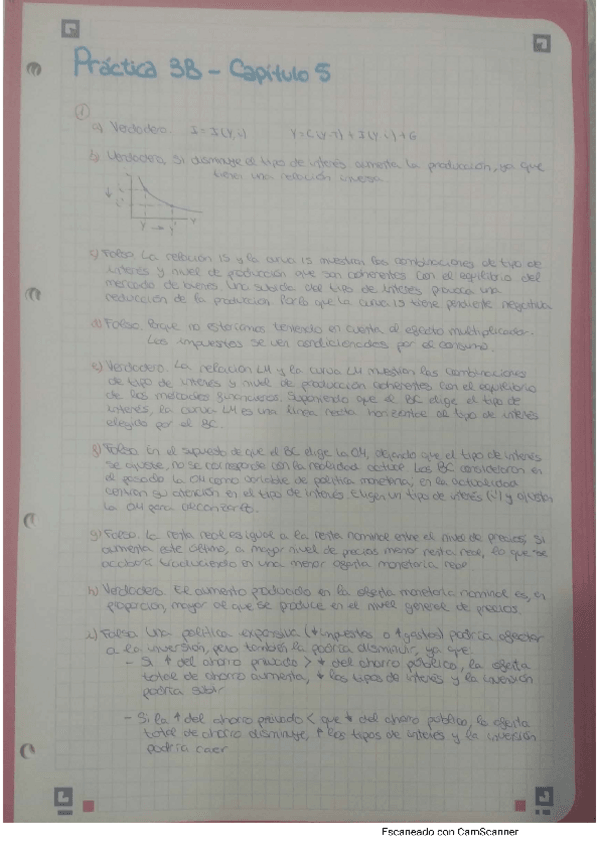 Práctica 3B - Capítulo 5
①
a) Verdadero. I = I(Y, i) Y = C(Y-T) + I(Y, i) + G
b) Verdadera. Si disminuye el tipo de interés aumenta la producción, ya que
tienen una relación inversa.
i
i'
Y → Y'
Y
c) Falso. La relación IS y la curva IS muestran las combinaciones de tipo de
interés y nivel de producción que son coherentes con el equilibrio del
mercado de bienes. Una subida del tipo de interés provoca una
reducción de la producción. Por lo que la curva IS tiene pendiente negativa.
d) Falso. Porque no estaríamos teniendo en cuenta el efecto multiplicador.
Los impuestos se ven condicionados por el consumo.
e) Verdadero. La relación LM y la curva LM muestran las combinaciones
de tipo de interés y nivel de producción coherentes con el equilibrio
de los mercados financieros. Suponiendo que el BC elige el tipo de
interés, la curva LM es una línea recta horizontal al tipo de interés
elegido por el BC.
f) Falso. En el supuesto de que el BC elige la OM, dejando que el tipo de interés
se ajuste, no se corresponde con la realidad actual. Los BC consideraron en
el pasado la OM como variable de política monetaria, en la actualidad
centran su atención en el tipo de interés. Eligen un tipo de interés (i) y ajustan
la OM para alcanzarlo.
g) Falso. La renta real es igual a la renta nominal entre el nivel de precios. Si
aumenta este último, a mayor nivel de precios menor renta real, lo que se
acabará traduciendo en una menor oferta monetaria real.
h) Verdadero. El aumento producido en la oferta monetaria nominal es, en
proporción, mayor al que se produce en el nivel general de precios.
i) Falsa. Una política expansiva (↓impuestos o ↑gastos) podría afectar
a la inversión, pero también la podría disminuir, ya que:
- Si ↑ del ahorro privado > ↓ del ahorro público, la oferta
total de ahorro aumenta, ↓ los tipos de interés y la inversión
podría subir
- Si la ↑ del ahorro privado < que ↓ del ahorro público, la oferta
total de ahorro disminuye, ↑ los tipos de interés y la inversión
podría caer
Escaneado con CamScanner